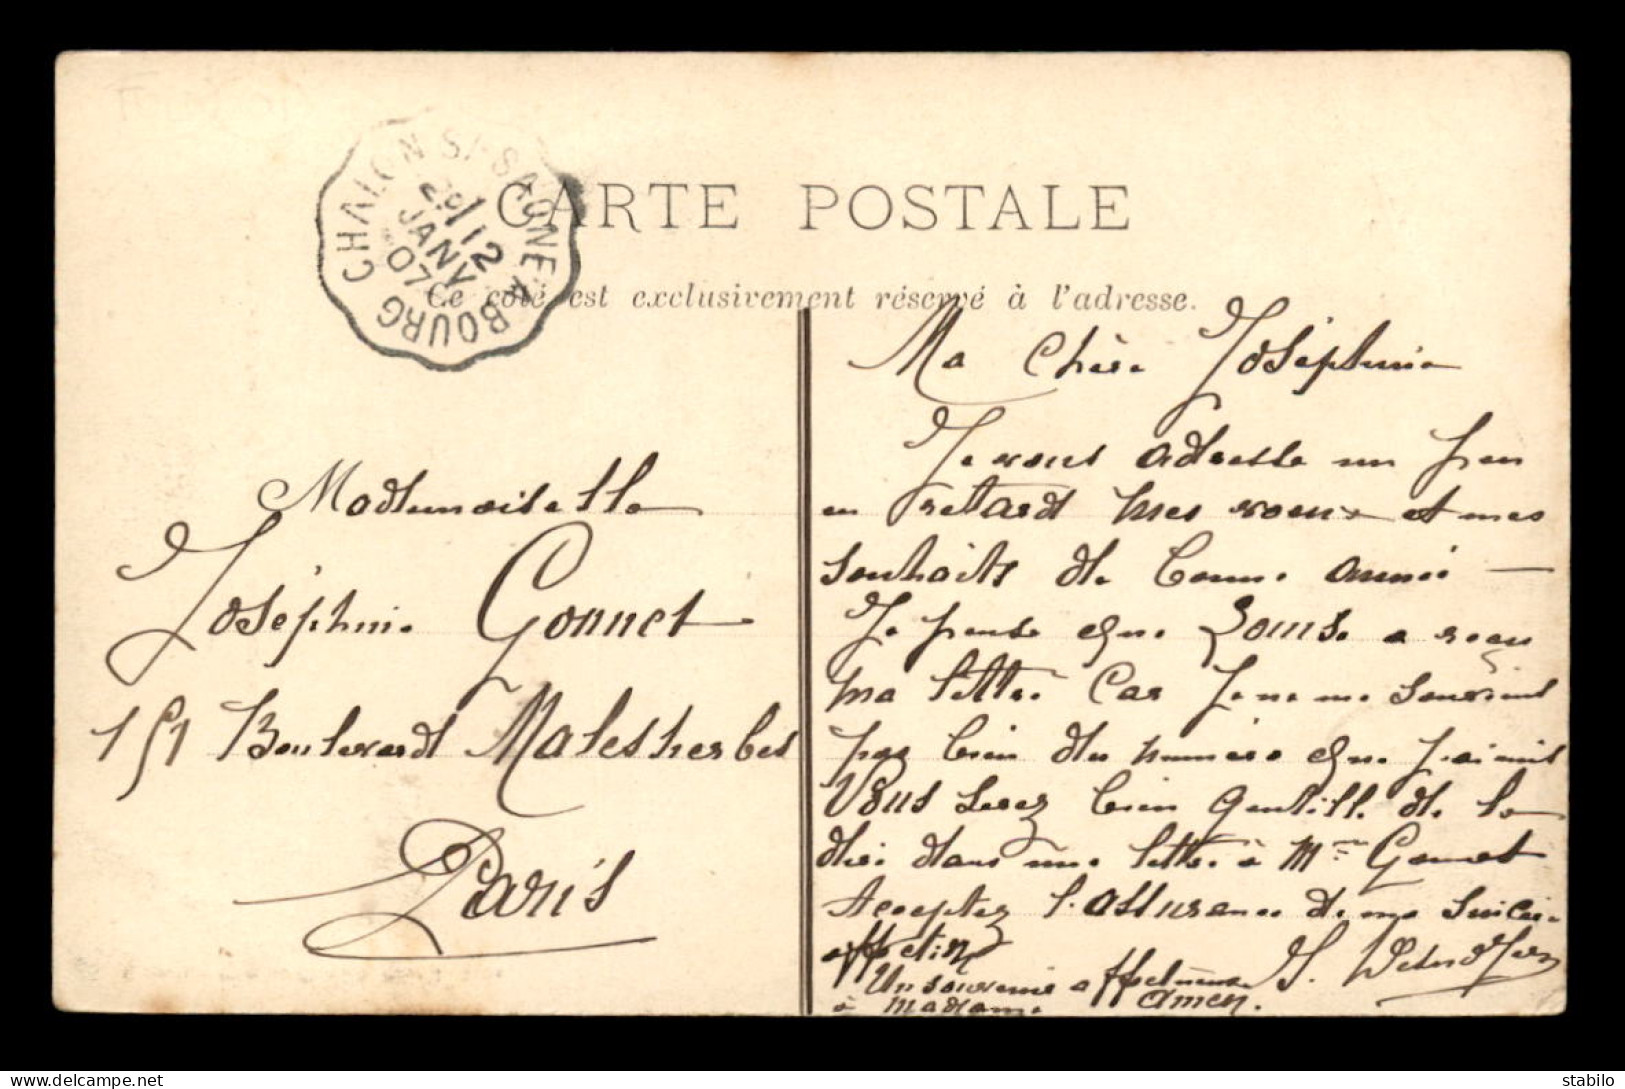 CARTE POSTALE
Ce côté est exclusivement réservé à l'adresse.
CHALON S/ SAONE A BOURG
2º/12
JANV
07
Mademoiselle
Joséphine Gonnet
151 Boulevard Malesherbes
Paris
Ma Chère Joséphine
Je vous adresse un peu
en retard mes voeux et mes
souhaits de bonne année —
Je pense que Louise a reçu
ma lettre Car je ne me souviens
pas bien du numéro que j'ai mis
Vous serez bien gentille de le
dire dans une lettre à Mme Gonnet
Acceptez l'assurance de ma sincère
affection
Un souvenir affectueux
à Madame Amen.
delcampe.net
stabilo